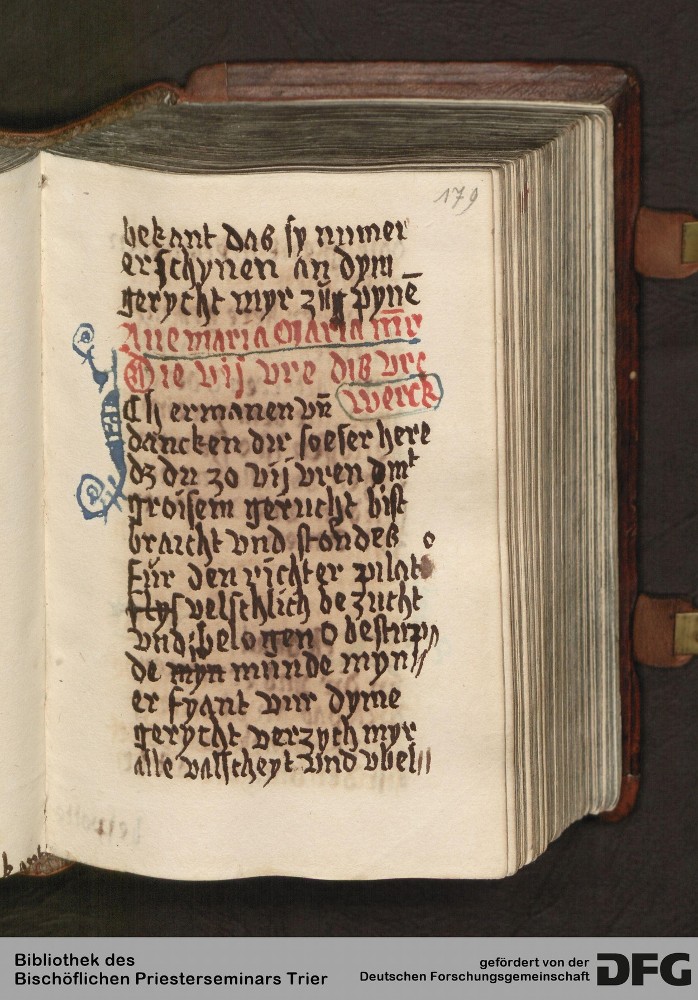 179
bekant das sy numer
erschynen an dym
gerycht myr zug pynē
Aue maria Maria
Die vij vre dis vre
werck
Ich ermanen vn̄
dancken dir soeser here
dz du zo vij vren
groisem gerucht bist
braicht vnd stondes
fur den richter pilato
flys velschlich bezucht
vnd belogen O bestup
de myn munde myn
er fyant vur dyme
gerycht verzych myr
alle valscheyt vnd vbel
Bibliothek des
Bischöflichen Priesterseminars Trier
gefördert von der
Deutschen Forschungsgemeinschaft
DFG